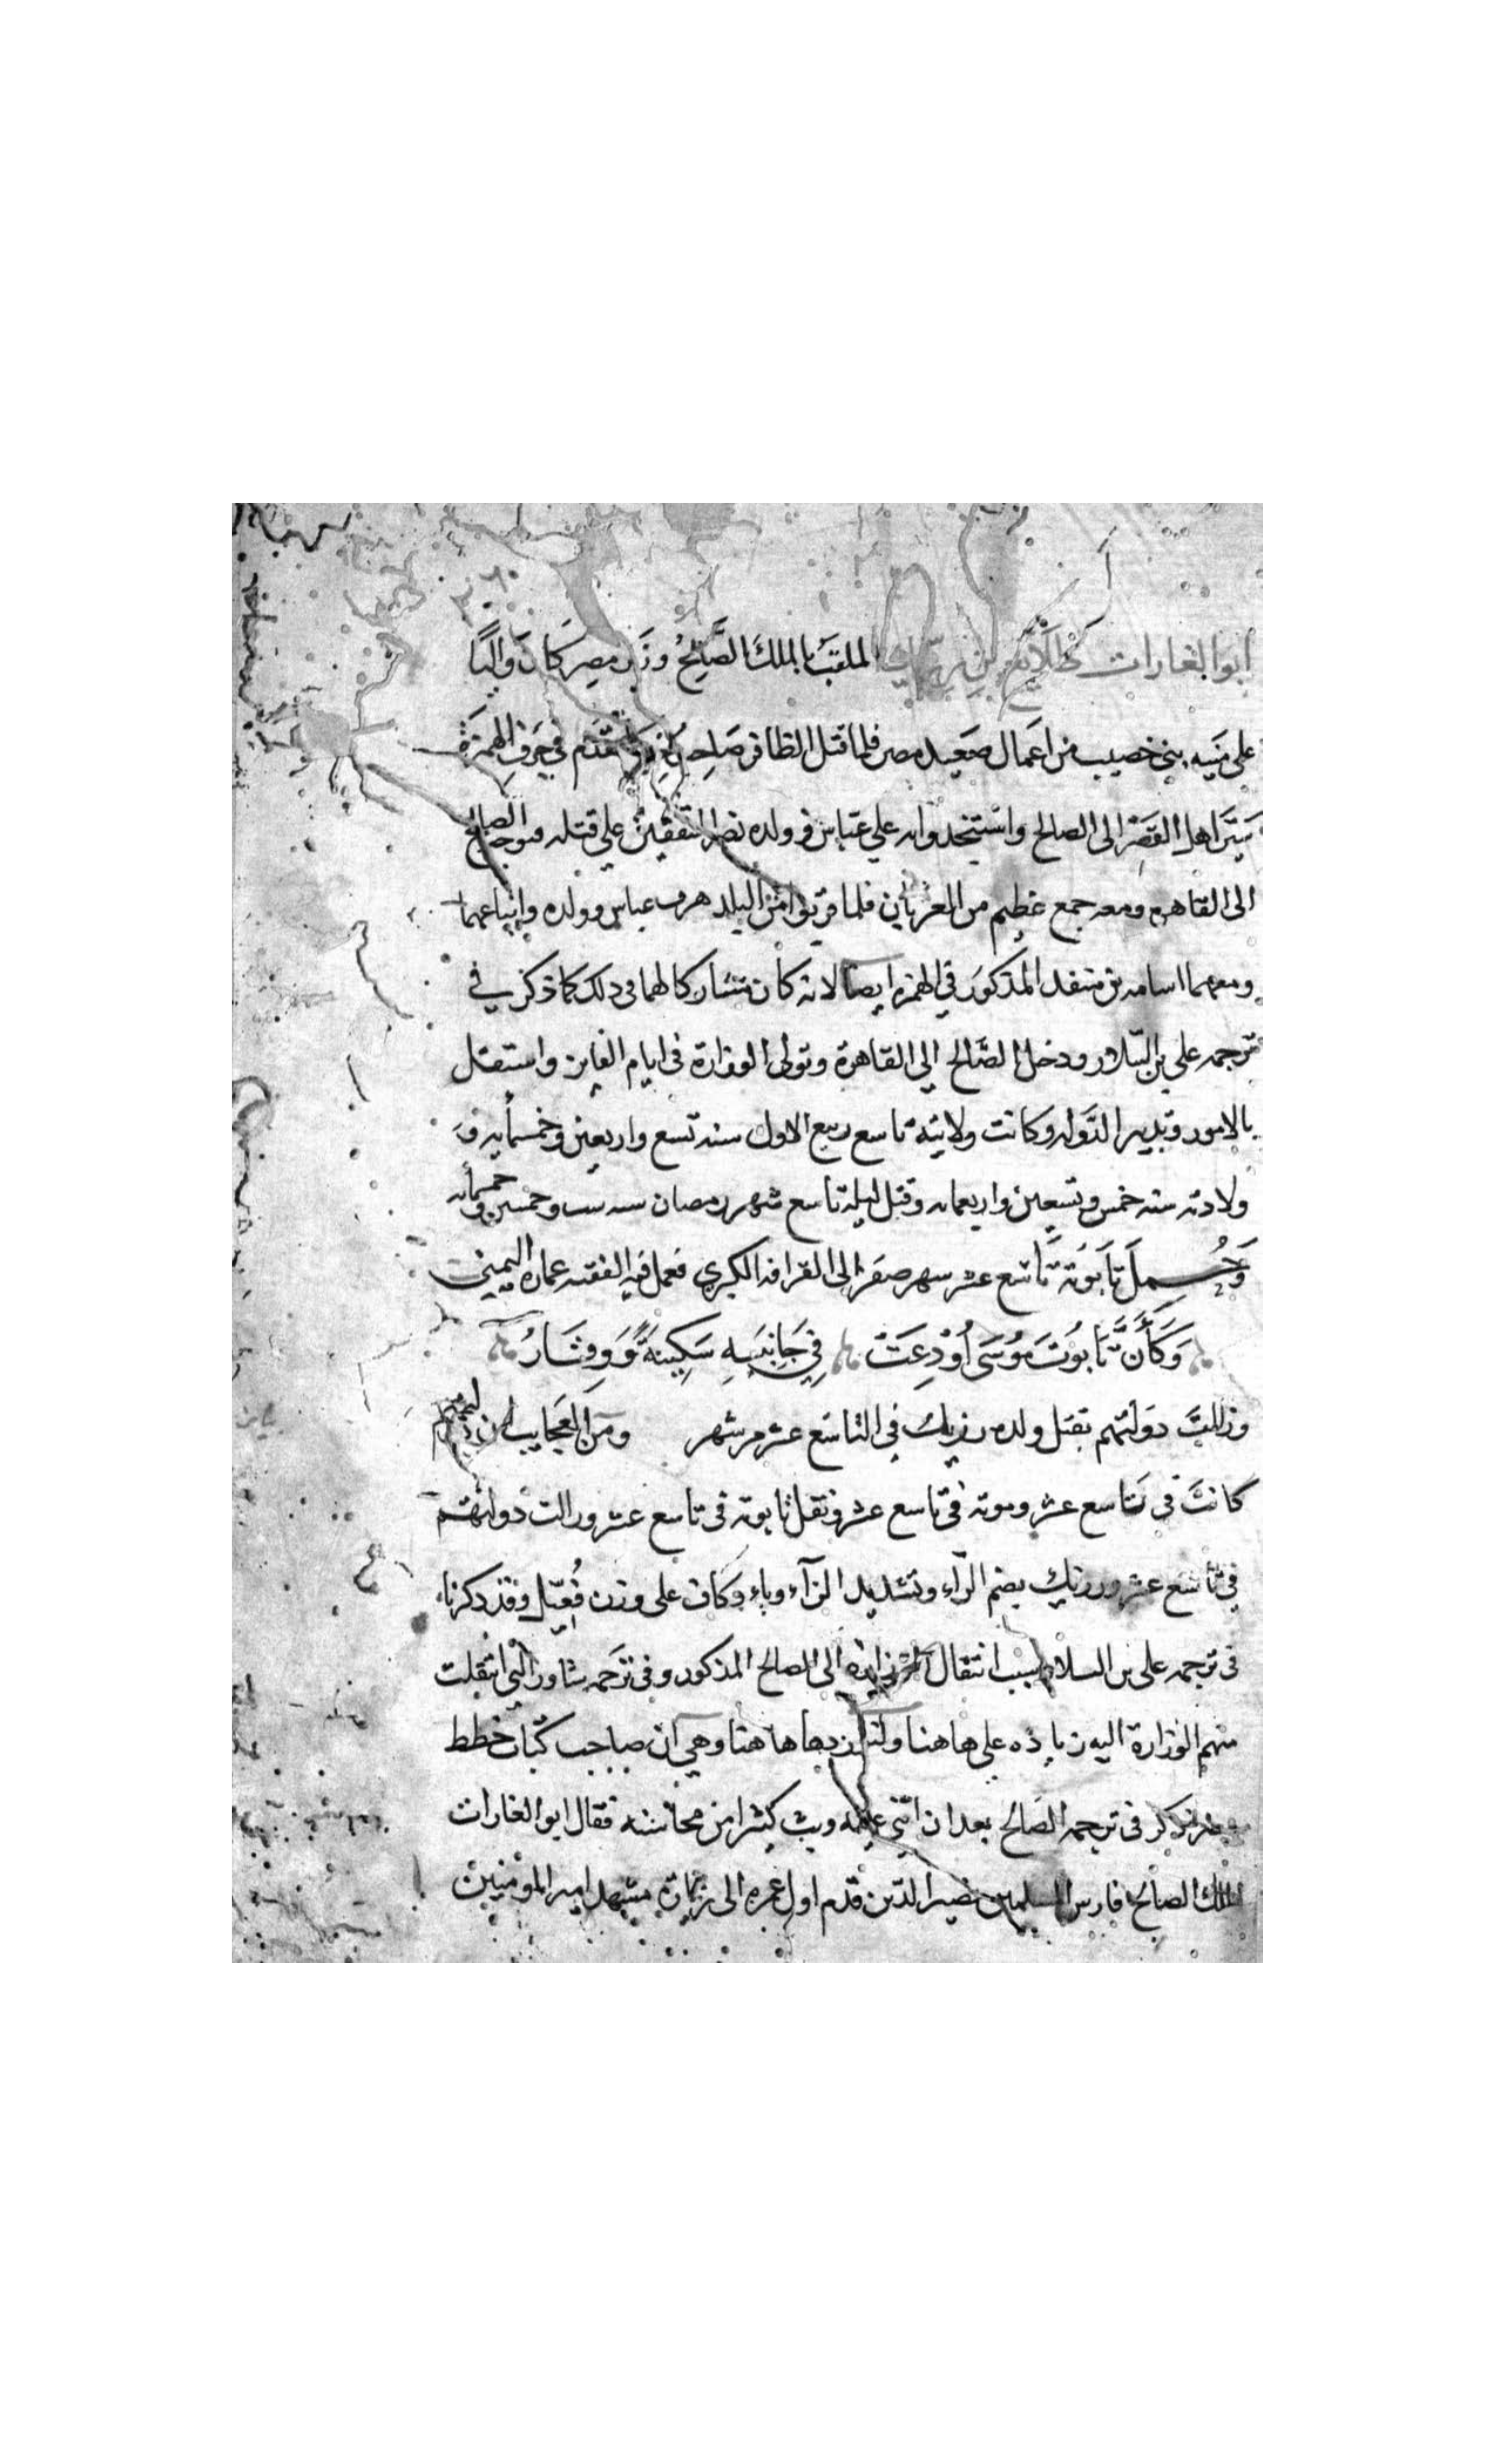 ابو الغارات طلايع بن رزيك الملقب بالملك الصَّالِحُ وزير مصر كَانَ وَاليًا
على منيه بنى خصيب من اعمال صعيد مصر فلما قتل الظافر صَاحِب تقدم في حرف الهمزة
سَيَّر اهل القصر الى الصالح واستنجدوا به علي عباس وولده نصر المتفقين علي قتله فتوجه الصالح
الى القاهره ومعه جمع عظيم من العربان فلما قربوا من البلد هرب عباس وولده واتباعهما
ومعهما اسامه بن منقذ المذكور في الهمزه ايضا لانه كان مشاركا لهما فى ذلك كما ذكر في
ترجمه علي بن السلار ودخل الصالح الي القاهرة وتولى الوزارة فى ايام الفايز واستقل
بالامور وتدبير الدوله وكانت ولايته تاسع ربيع الاول سنه تسع واربعين وخمسمايه و
ولادته سنه خمس وتسعين واربعمايه وقتل ليلة تاسع شهر رمصان سنه ست وخمسين وخمسمايه
وَحُمِلَ تَابَوته تَاسع عشر شهر صفر الى القرافه الكبري فعمل فيه الفقيه عماره اليمني
وَكَأَنَّ تَّابُوتَ مُوْسَى اُوْدِعَتْ فِي جَانِبَيهِ سَكِينَةٌ وَوِقَارُ
وزالت دولتهم بقتل ولده رزيك فى التاسع عشر من شهر ومن العجايب ان
كانت فى تاسع عشر وموته فى تاسع عشر ونقل تابوته فى تاسع عشر وزالت دولتهم
في تاسع عشر ورزيك بضم الرآء وتشديد الزآء وياء وكاف على وزن فُعيّل وقد ذكرنا
فى ترجمه على بن السلار بسبب انتقال الى الصالح المذكور وفى ترجمه شاور التى انتقلت
منهم الوزارة اليه زيادة على ها هنا ها هنا وهي ان صاحب كتاب خطط
مصر ذكر فى ترجمه الصالح بعد ان اثنى عليه وبث كثيرا من محاسنه فقال ابو الغارات
الملك الصالح فارس المسلمين نصير الدين قدم اول عمره الى زيارة مشهد امير المومنين